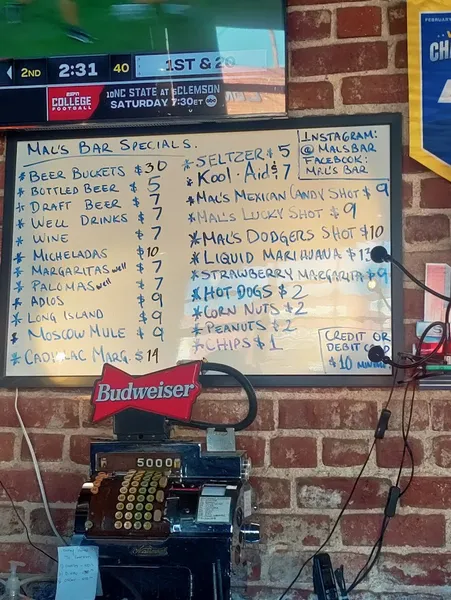 2ND 2:31 40 1ST & 20
ESPN COLLEGE FOOTBALL
10 NC STATE AT 5 CLEMSON
SATURDAY 7:30 ET abc
FEBRUARY
CHA
MAL'S BAR SPECIALS.
* BEER BUCKETS $30
* BOTTLED BEER $5
* DRAFT BEER $7
* WELL DRINKS $7
* WINE $7
* MICHELADAS $10
* MARGARITAS well $7
* PALOMAS well $7
* ADIOS $9
* LONG ISLAND $9
* MOSCOW MULE $9
* CADILLAC MARG. $14
* SELTZER $5
* KOOL-AID $7
* MAL'S MEXICAN CANDY SHOT $9
* MAL'S LUCKY SHOT $9
* MAL'S DODGERS SHOT $10
* LIQUID MARIHUANA $13
* STRAWBERRY MARGARITA $9
* HOT DOGS $2
* CORN NUTS $2
* PEANUTS $2
* CHIPS $1
INSTAGRAM:
@MALSBAR
FACEBOOK:
MAL'S BAR
CREDIT OR
DEBIT
$10
Budweiser
5000
National